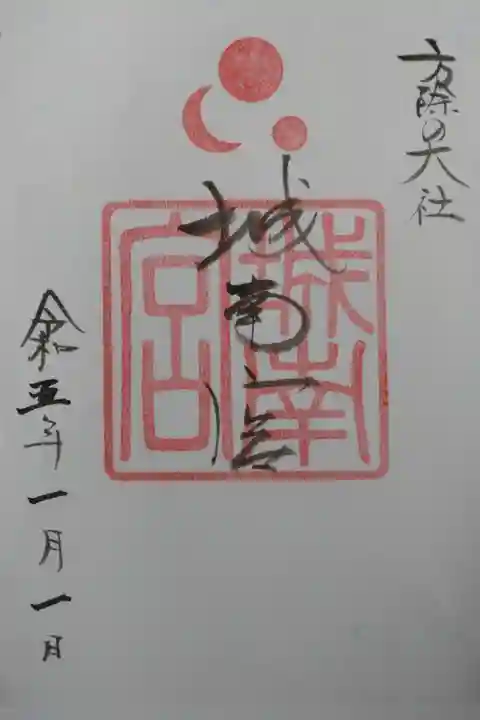 方除の大社
城南宮
城南宮
令和五年一月一日